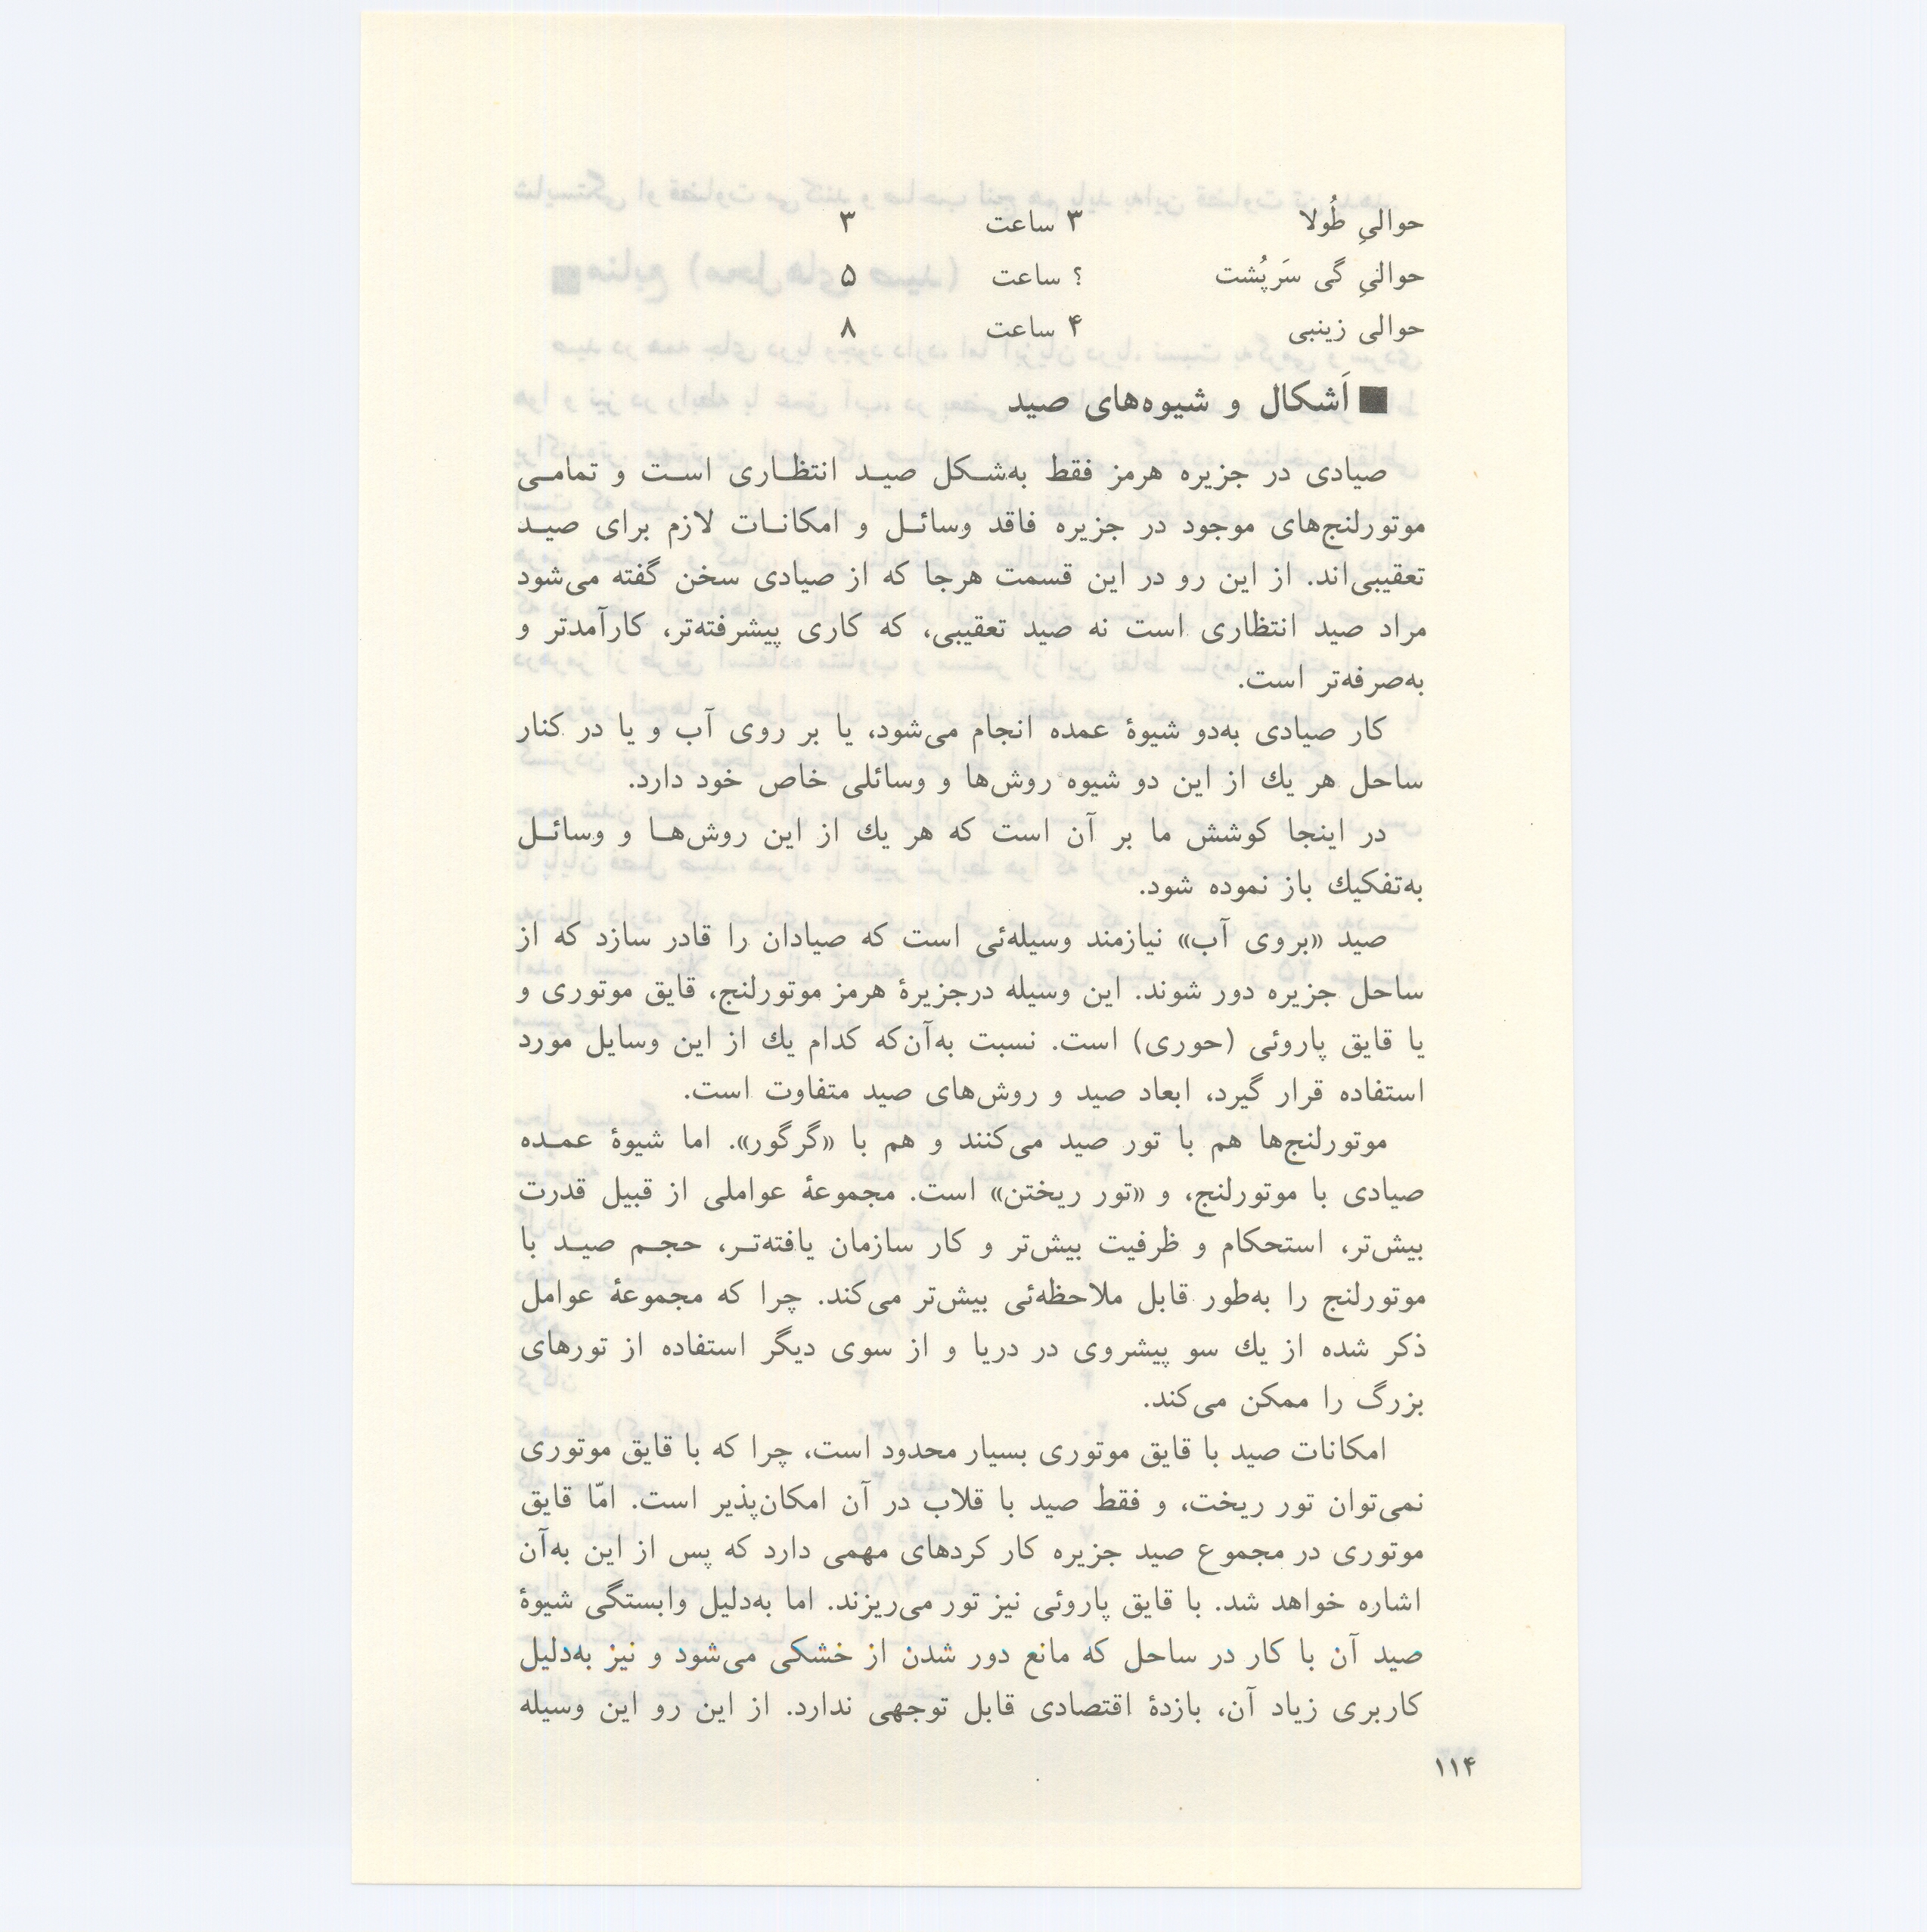 حوالیِ طُولا ۳ ساعت ۳
حوالیِ گی سَرپُشت ؟ ساعت ۵
حوالی زینبی ۴ ساعت ۸
■ اَشکال و شیوه‌های صید
صیادی در جزیره هرمز فقط به‌شکل صید انتظاری است و تمامی
موتورلنج‌های موجود در جزیره فاقد وسائل و امکانات لازم برای صید
تعقیبی‌اند. از این رو در این قسمت هرجا که از صیادی سخن گفته می‌شود
مراد صید انتظاری است نه صید تعقیبی، که کاری پیشرفته‌تر، کارآمدتر و
به‌صرفه‌تر است.
کار صیادی به‌دو شیوهٔ عمده انجام می‌شود، یا بر روی آب و یا در کنار
ساحل هر یك از این دو شیوه روش‌ها و وسائلی خاص خود دارد.
در اینجا کوشش ما بر آن است که هر یك از این روش‌ها و وسائل
به‌تفکیك باز نموده شود.
صید «بروی آب» نیازمند وسیله‌ئی است که صیادان را قادر سازد که از
ساحل جزیره دور شوند. این وسیله درجزیرهٔ هرمز موتورلنج، قایق موتوری و
یا قایق پاروئی (حوری) است. نسبت به‌آن‌که کدام یك از این وسایل مورد
استفاده قرار گیرد، ابعاد صید و روش‌های صید متفاوت است.
موتورلنج‌ها هم با تور صید می‌کنند و هم با «گرگور». اما شیوهٔ عمده
صیادی با موتورلنج، و «تور ریختن» است. مجموعهٔ عواملی از قبیل قدرت
بیش‌تر، استحکام و ظرفیت بیش‌تر و کار سازمان یافته‌تر، حجم صید با
موتورلنج را به‌طور قابل ملاحظه‌ئی بیش‌تر می‌کند. چرا که مجموعهٔ عوامل
ذکر شده از یك سو پیشروی در دریا و از سوی دیگر استفاده از تورهای
بزرگ را ممکن می‌کند.
امکانات صید با قایق موتوری بسیار محدود است، چرا که با قایق موتوری
نمی‌توان تور ریخت، و فقط صید با قلاب در آن امکان‌پذیر است. امّا قایق
موتوری در مجموع صید جزیره کار کردهای مهمی دارد که پس از این به‌آن
اشاره خواهد شد. با قایق پاروئی نیز تور می‌ریزند. اما به‌دلیل وابستگی شیوهٔ
صید آن با کار در ساحل که مانع دور شدن از خشکی می‌شود و نیز به‌دلیل
کاربری زیاد آن، بازدهٔ اقتصادی قابل توجهی ندارد. از این رو این وسیله
۱۱۴